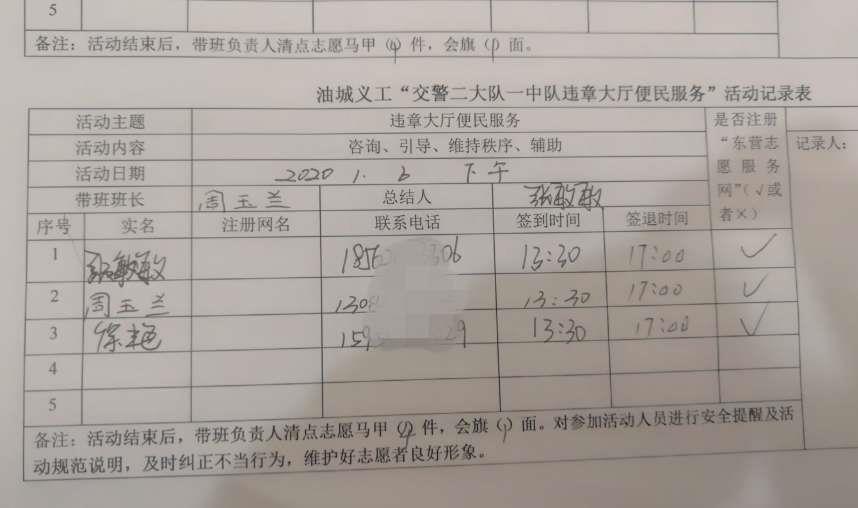 5
备注：活动结束后，带班负责人清点志愿马甲（4）件，会旗（1）面。
油城义工“交警二大队一中队违章大厅便民服务”活动记录表
活动主题 违章大厅便民服务 是否注册“东营志愿服务网”（√或者×） 记录人：
活动内容 咨询、引导、维持秩序、辅助
活动日期 2020 1. 6 下午
带班班长 周玉兰 总结人 张敏敏
序号 实名 注册网名 联系电话 签到时间 签退时间
1 张敏敏 1856 306 13:30 17:00 √
2 周玉兰 1308 13:30 17:00 √
3 徐艳 159 29 13:30 17:00 √
4
5
备注：活动结束后，带班负责人清点志愿马甲（4）件，会旗（1）面。对参加活动人员进行安全提醒及活
动规范说明，及时纠正不当行为，维护好志愿者良好形象。